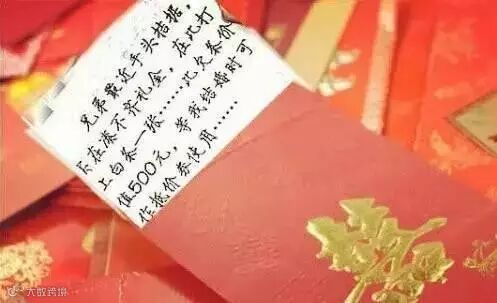 兄弟最近手头桔据，
实在凑不齐礼金，在此打
上白条一张……此欠条价
值500元，等我结婚时可
作抵价券使用……
大数跨境